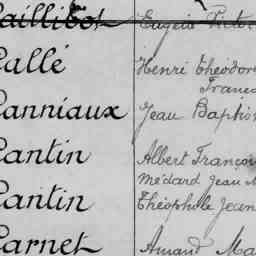 aillibot Eugène Victo
Callé Henri Théodor
Franço
Canniaux Jean Baptis
Cantin Albert Franço
Médard Jean M
Cantin Théophile Jean
Carnet Amand Ma